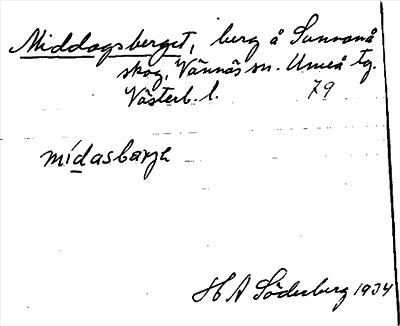 Middagsberget, berg å Sunnanå
skog, Vännäs sn. Umeå tg.
Västerb. l. 79
mídasbarjə
H A Söderberg 1934